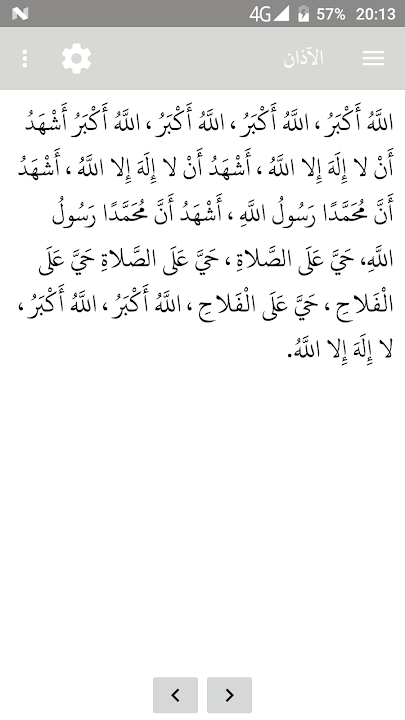 4G 57% 20:13
الآذان
اللَّهُ أَكْبَرُ ، اللَّهُ أَكْبَرُ ، اللَّهُ أَكْبَرُ ، اللَّهُ أَكْبَرُ أَشْهَدُ
أَنْ لا إِلَهَ إِلا اللَّهُ ، أَشْهَدُ أَنْ لا إِلَهَ إِلا اللَّهُ ، أَشْهَدُ
أَنَّ مُحَمَّدًا رَسُولُ اللَّهِ ، أَشْهَدُ أَنَّ مُحَمَّدًا رَسُولُ
اللَّهِ، حَيَّ عَلَى الصَّلاةِ ، حَيَّ عَلَى الصَّلاةِ حَيَّ عَلَى
الْفَلاحِ ، حَيَّ عَلَى الْفَلاحِ ، اللَّهُ أَكْبَرُ ، اللَّهُ أَكْبَرُ ،
لا إِلَهَ إِلا اللَّهُ.